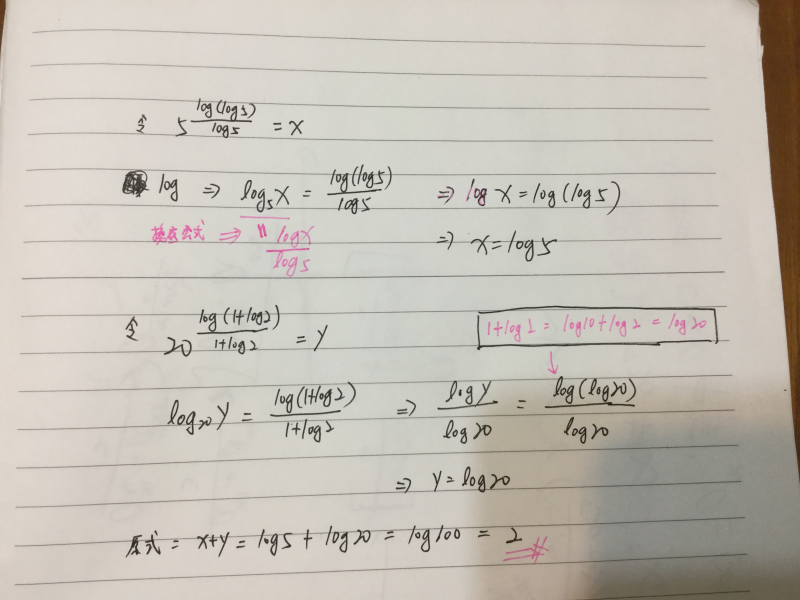 令 5^(log(log5)/log5) = x
log ⇒ log₅x = log(log5)/log5 ⇒ log x = log(log5)
換底公式 ⇒ " logx/log5 ⇒ x = log5
令 20^(log(1+log2)/(1+log2)) = y
1+log2 = log10+log2 = log20
log₂₀y = log(1+log2)/(1+log2) ⇒ logy/log20 = log(log20)/log20
⇒ y = log20
原式 = x+y = log5 + log20 = log100 = 2